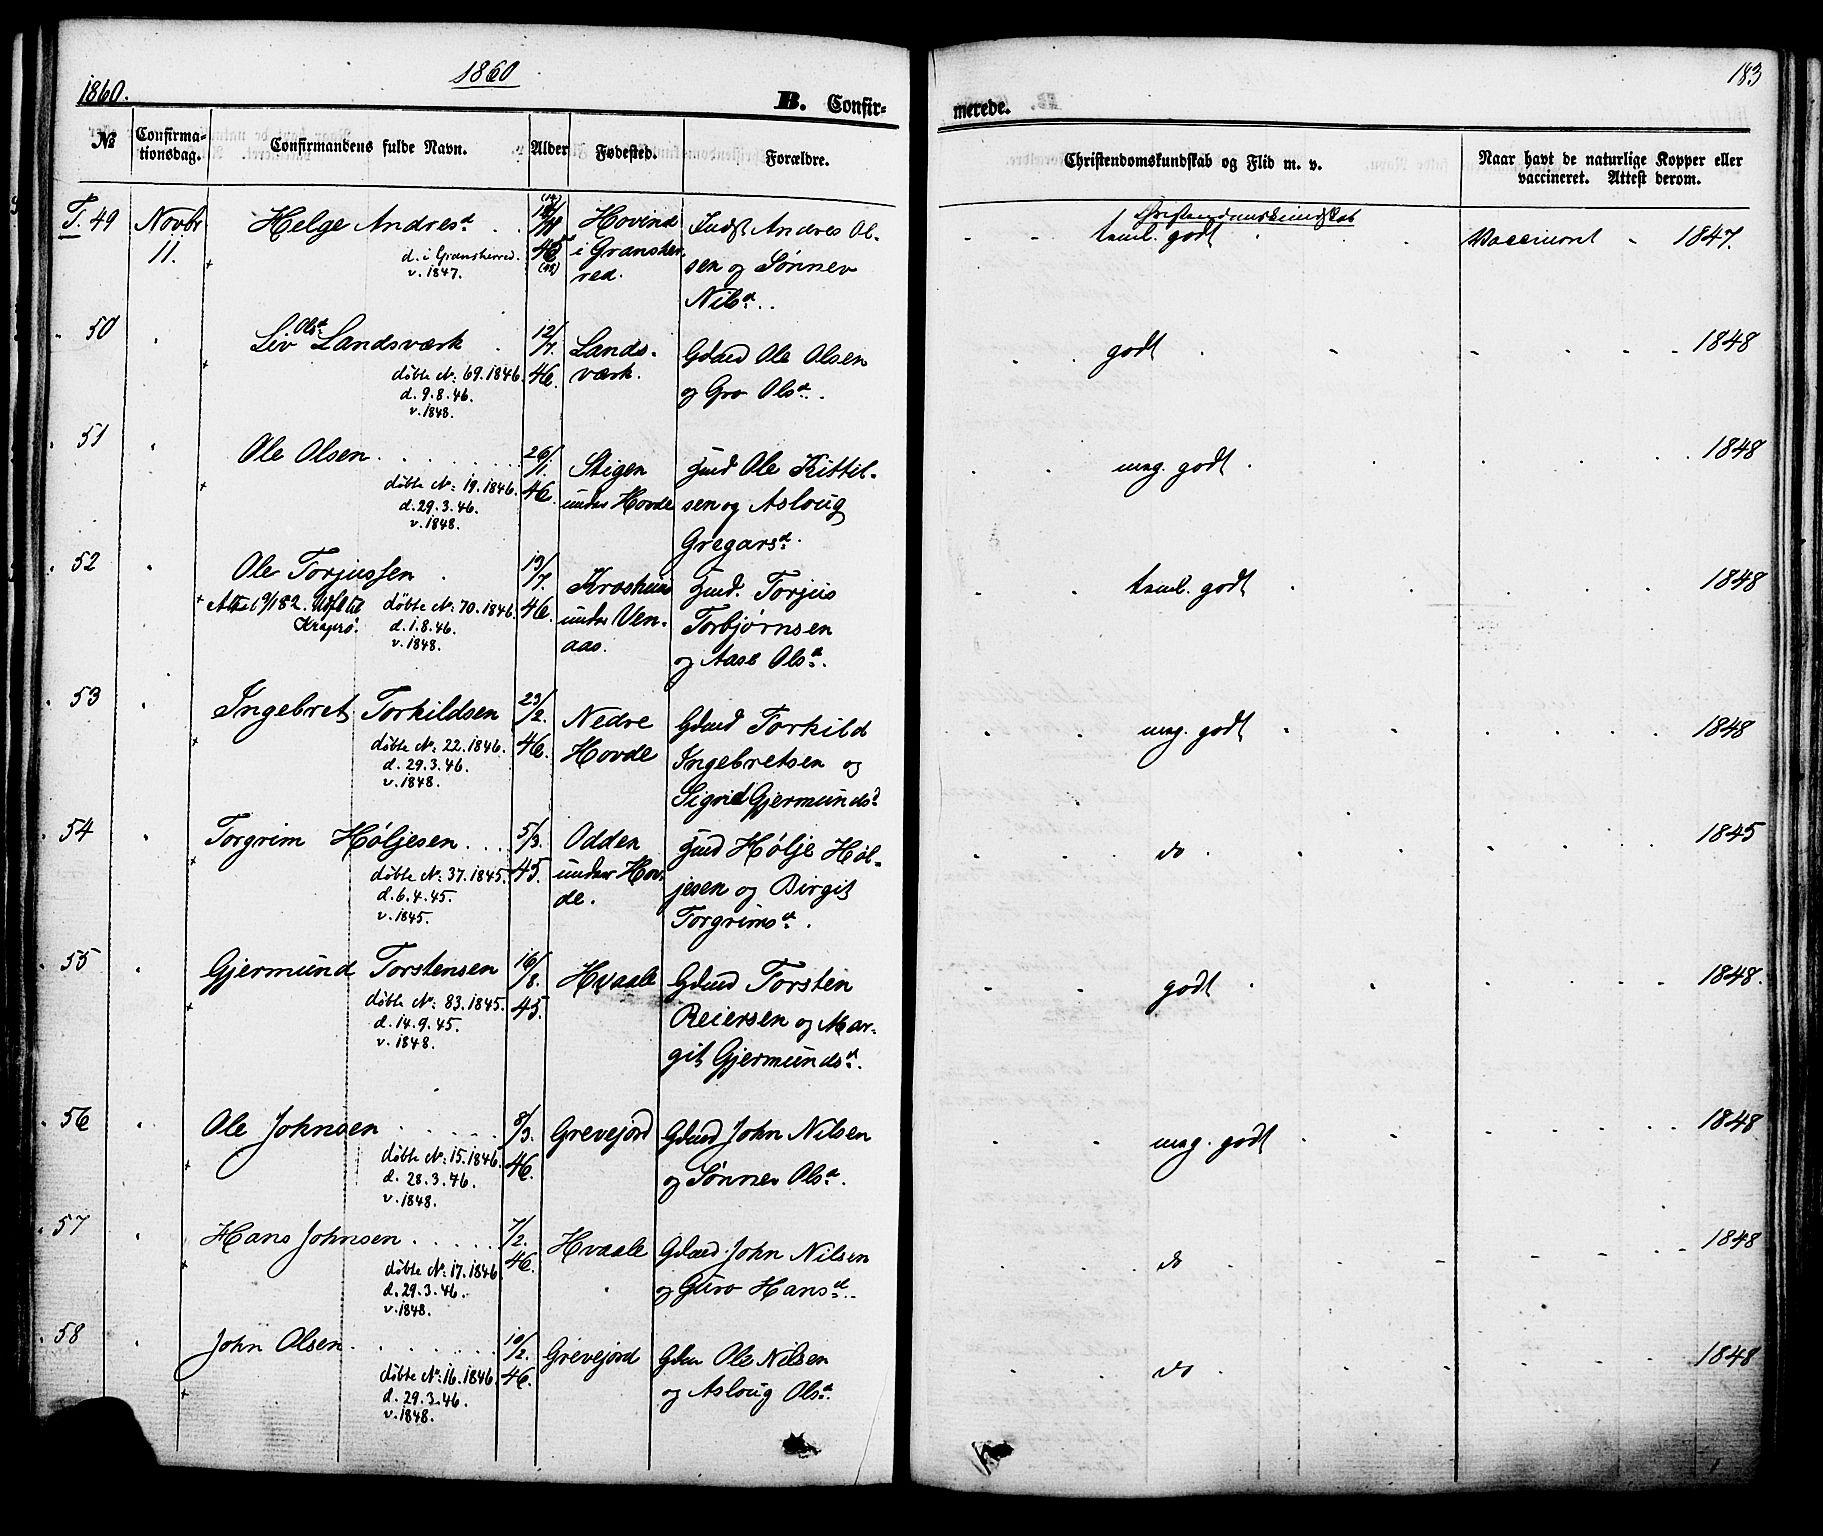 1860
1860.
183
B. Confir-
merede.
№
Confirma-
tionsdag.
Confirmandens fulde Navn.
Alder
Fødested.
Forældre.
Christendomskundskab og Flid m. v.
Naar havt de naturlige Kopper eller
vaccineret. Attest derom.
T. 49 Novbr 11. Helge Andresd.
d. i Gransherred.
v. 1847.
45
Hovind
i Gransher-
red.
Indst Andres Ol-
sen og Sønnev
Nilsd.
Christendomskundskab
teml. godt
Vaccineret 1847.
50 Liv Olsd. Landsværk
døbte N: 69. 1846.
d. 9.8.46.
v. 1848.
12/7.
46.
Lands-
værk.
Gdmd Ole Olsen
og Gro Olsd.
godt
1848
51 Ole Olsen
døbte N: 19. 1846.
d. 29.3.46.
v. 1848.
26/1.
46.
Stigen
under Hovde
Hmd Ole Kittil-
sen og Asloug
Gregarsd.
meg. godt
1848
52 Ole Torjussen
Kragerø.
døbte N: 70. 1846.
d. 1.8.46.
v. 1848.
19/7.
46.
under Ven-
aas.
Hmd. Torjus
Torbjørnsen
og Aase Olsd.
teml. godt
1848
53 Ingebret Torkildsen
døbte N: 22. 1846.
d. 29.3.46.
v. 1848.
23/2.
46.
Nedre
Hovde
Gdmd Torkild
Ingebretsen og
Sigrid Gjermundsd
meg. godt
1848
54 Torgrim Høljesen
døbte N: 37. 1845.
d. 6.4.45.
v. 1845.
5/3.
45.
Odden
under Hov-
de.
Hmd Hølje Høl-
jesen og Birgit
Torgrimsd.
do
1845
55 Gjermund Torstensen
døbte N: 83. 1845.
d. 14.9.45.
v. 1848.
16/8.
45.
Hvaale
Gdmd Torsten
Reiersen og Mar-
git Gjermundsd.
godt
1848.
56 Ole Johnsen
døbte N: 15. 1846.
d. 28.3.46.
v. 1848.
8/3.
46.
Grevejord
Gdmd John Nilsen
og Sønnev Olsd.
meg. godt
1848
57 Hans Johnsen
døbte N: 17. 1846.
d. 29.3.46.
v. 1848.
7/2.
46.
Hvaale
Gdmd John Nilsen
og Guro Hansd.
do
1848
58 John Olsen
døbte N: 16. 1846.
d. 29.3.46.
v. 1848.
10/2.
46.
Grevejord
Gdm Ole Nilsen
og Asloug Olsd.
do
1848